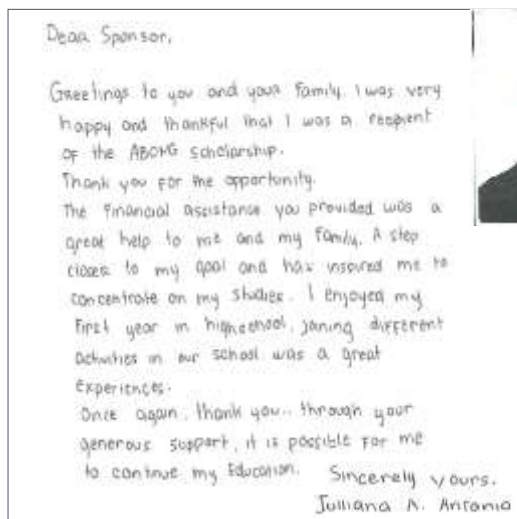 Dear Sponsor,
Greetings to you and your family. I was very
happy and thankful that I was a recepient
of the ABOKG scholarship.
Thank you for the opportunity.
The financial assistance you provided was a
great help to me and my family. A step
closer to my goal and has inspired me to
concentrate on my studies. I enjoyed my
First year in highschool, joning different
activities in our school was a great
experiences.
Once again, thank you.. through your
generous support, it is possible for me
to continue my Education.
Sincerely yours.
Julliana A. Antonio